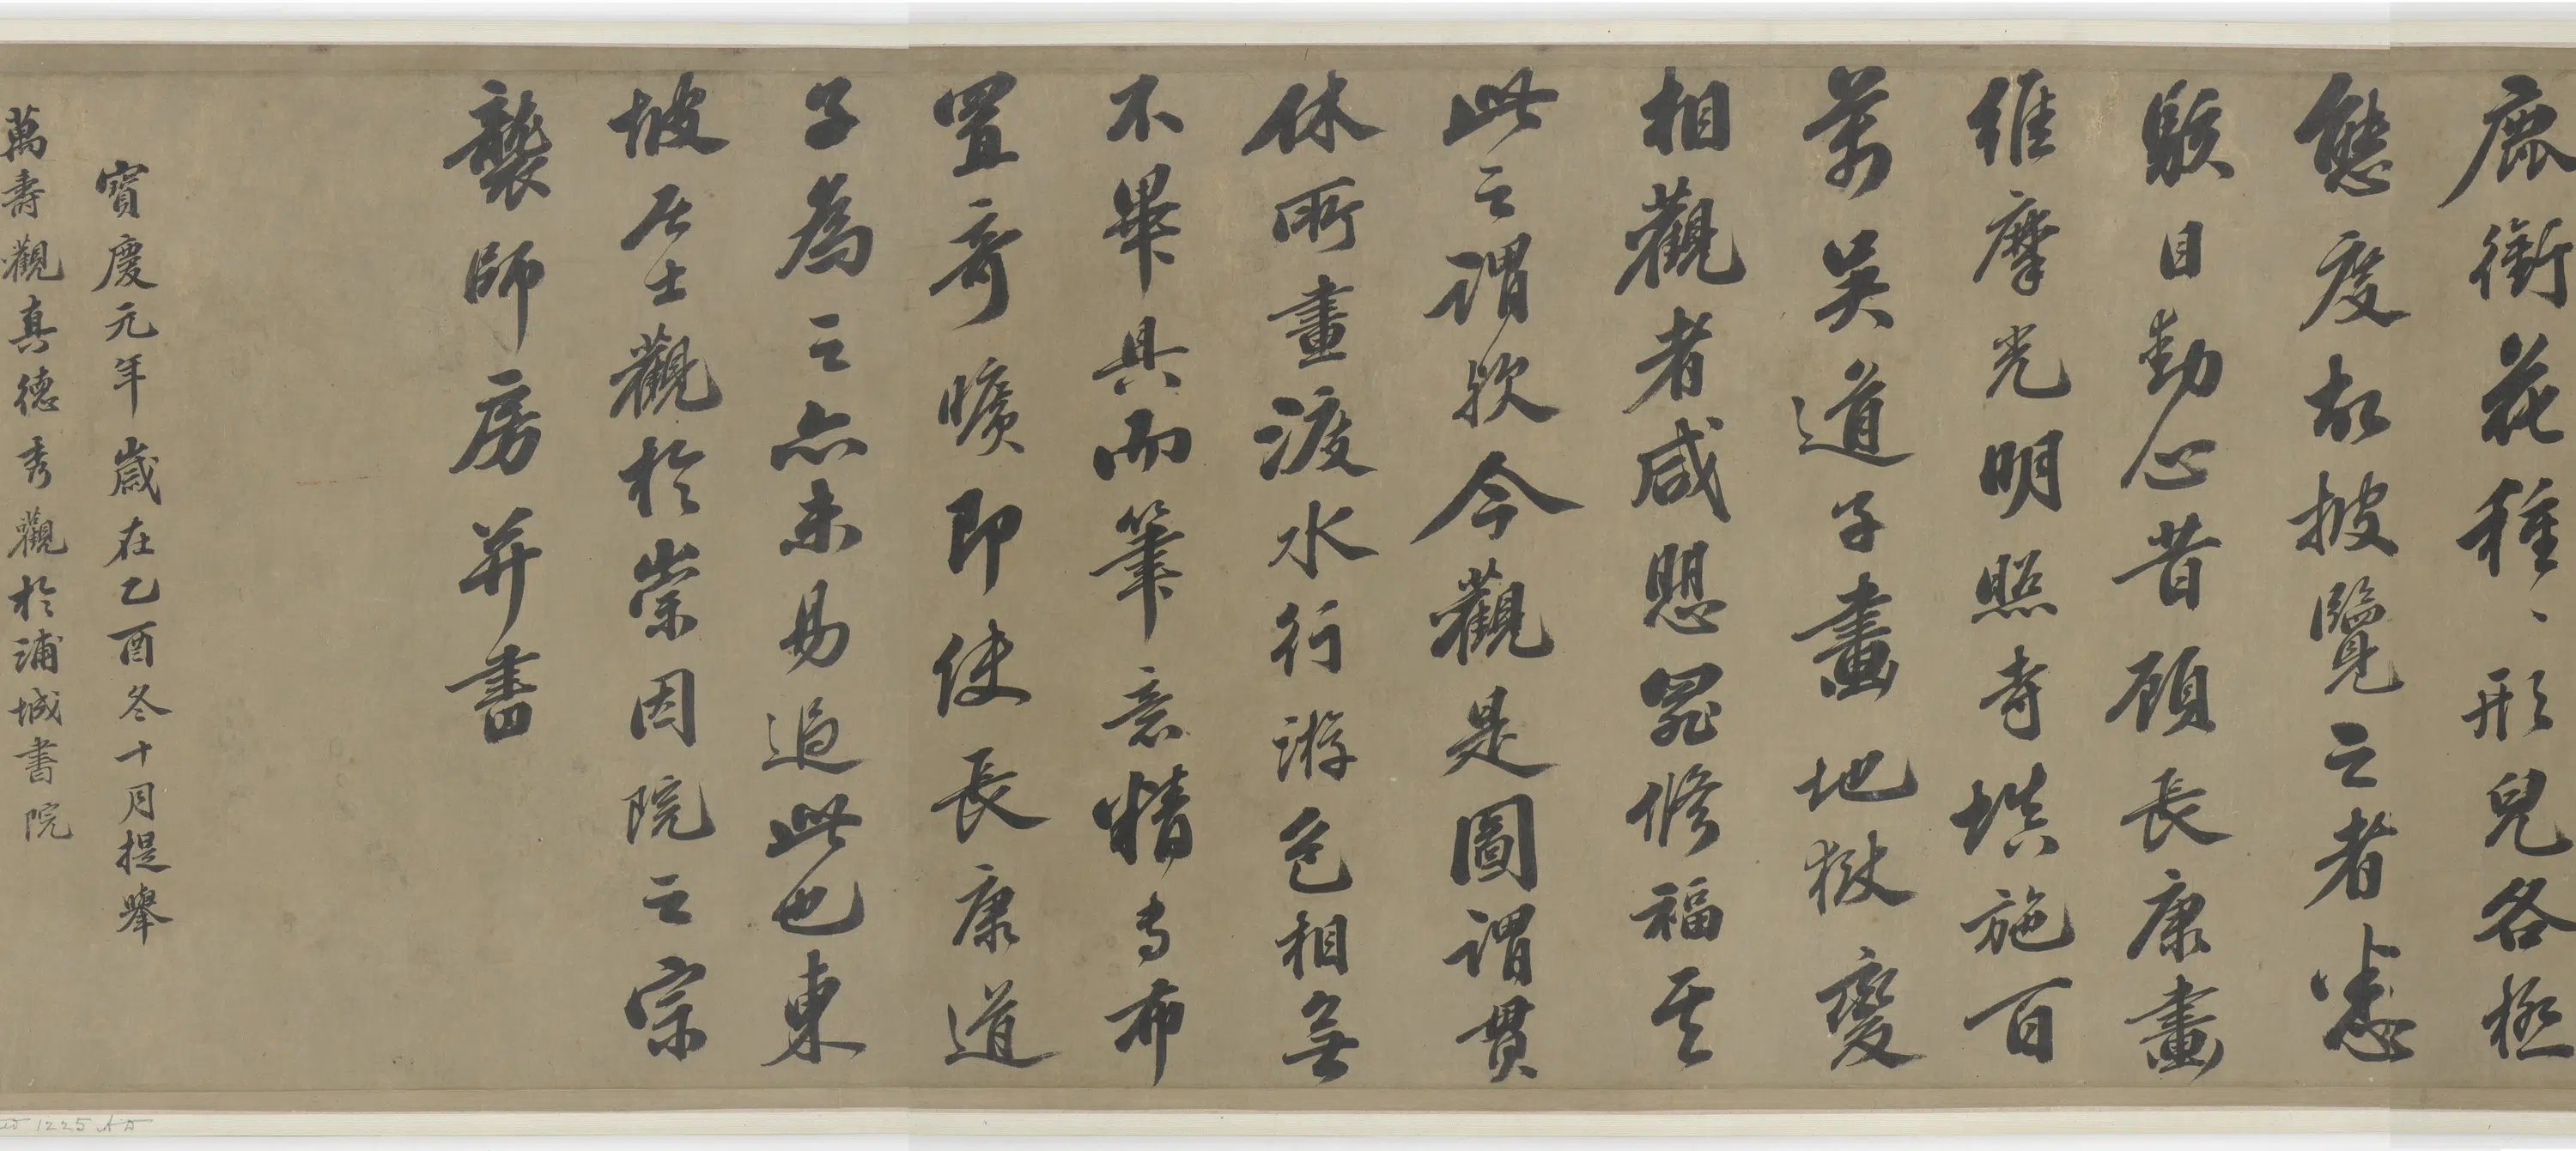 鹿銜花種〻形皃各極
態度故披覽之者悉
駭目動心昔顧長康畫
維摩光明照寺填施百
萬吳道子畫地獄變
相觀者咸懼罪修福其
此之謂歟今觀是圖謂貫
休所畫渡水行游色相無
不畢具而筆意精專布
置奇曠即使長康道
子為之亦未易過此也東
坡居士觀於崇因院之宗
襲師房并書
寶慶元年歲在乙酉冬十月提舉
萬壽觀真德秀觀於浦城書院
1225 AD